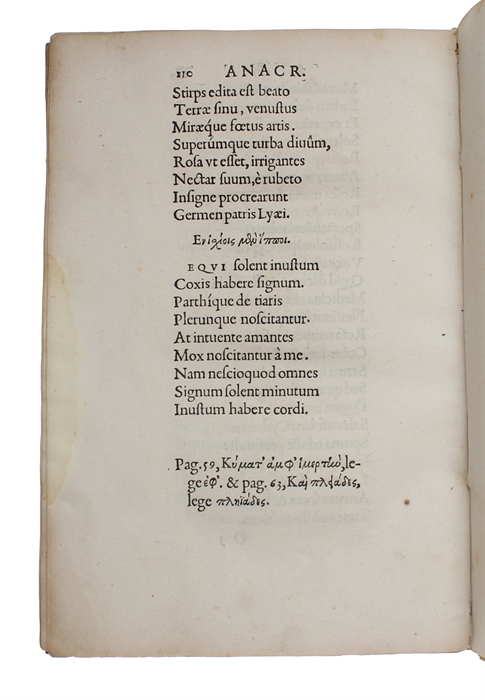 110 ANACR.
Stirps edita est beato
Terræ sinu, venustus
Miræque fœtus artis.
Superûmque turba diuûm,
Rosa vt esset, irrigantes
Nectar suum, è rubeto
Insigne procrearunt
Germen patris Lyæi.
Ἐν ἰσχίοις μὲν ἵπποι.
EQVI solent inustum
Coxis habere signum.
Parthíque de tiaris
Plerunque noscitantur.
At intuente amantes
Mox noscitantur à me.
Nam nescioquod omnes
Signum solent minutum
Inustum habere cordi.
Pag. 59, Κύματ' ἀμφ' ἱμερτῶν, le-
ge ἐφ'. & pag. 63, Καὶ πλειάδες,
lege πληϊάδες.